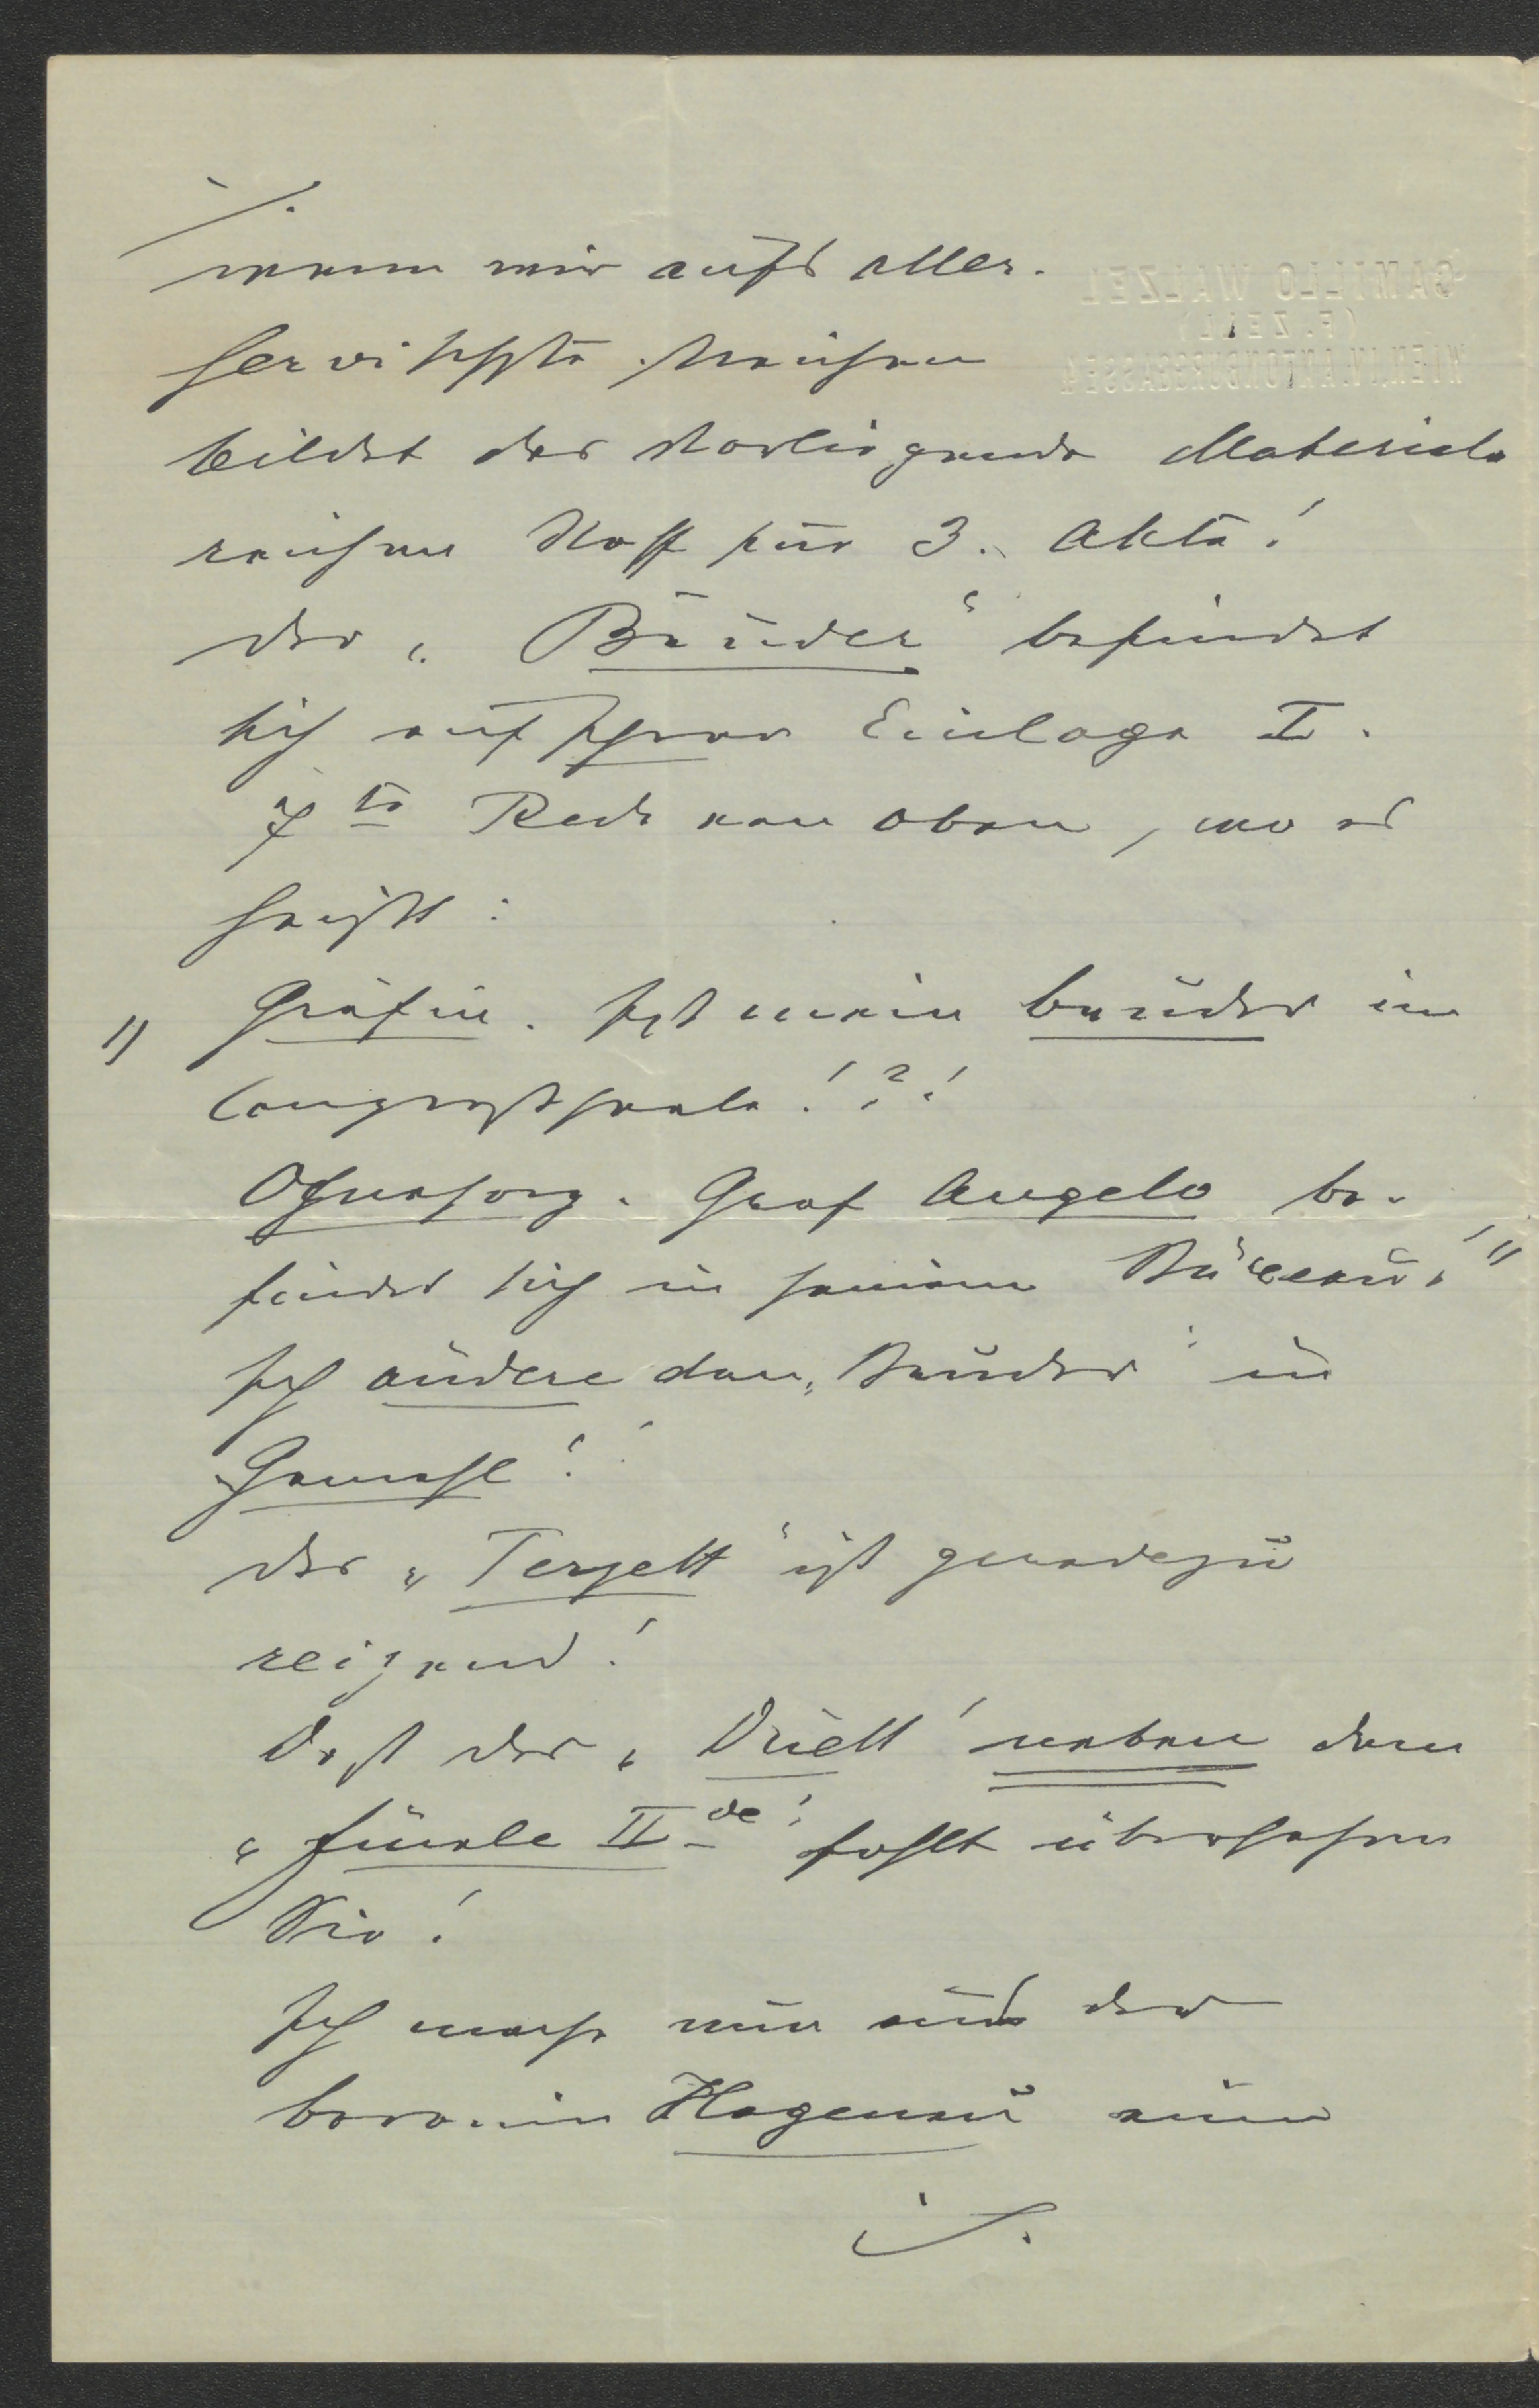 ./.
wenn wir aufs aller-
servilste streichen
bildet das vorliegende Material
reichen Stoff für 3. Akte!
der „Bruder“ befindet
sich auf Ihrer Einlage I.
7te Rede von oben, wo es
heißt:
") Gräfin. Ist mein bruder im
Congreßsaale!?!
Ohnesorg. Graf Angelo be-
findet sich in seinem Bureau!"
Ich ändere den „Bruder“ in
Gemahl!
das „Terzett“ ist geradezu
reizend!
Daß das „Duett“ neben dem
„finale IIde“ fehlt übersehen
Sie!
Ich mache nun aus der
baronin Hagenau eine
./.
CAMILLO WALZEL
(F. ZELL)
WIEN